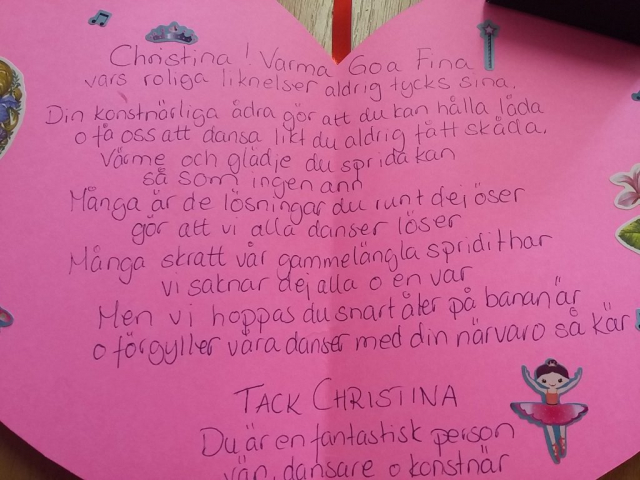 Christina! Varma Goa Fina
vars roliga liknelser aldrig tycks sina.
Din konstnärliga ådra gör att du kan hålla låda
o få oss att dansa likt du aldrig fått skåda.
Värme och glädje du sprida kan
så som ingen ann
Många är de lösningar du runt dej öser
gör att vi alla danser löser
Många skratt vår gammelängla spridit har
vi saknar dej alla o en var
Men vi hoppas du snart åter på banan är
o förgyller våra danser med din närvaro så kär
TACK CHRISTINA
Du är en fantastisk person
vän, dansare o konstnär